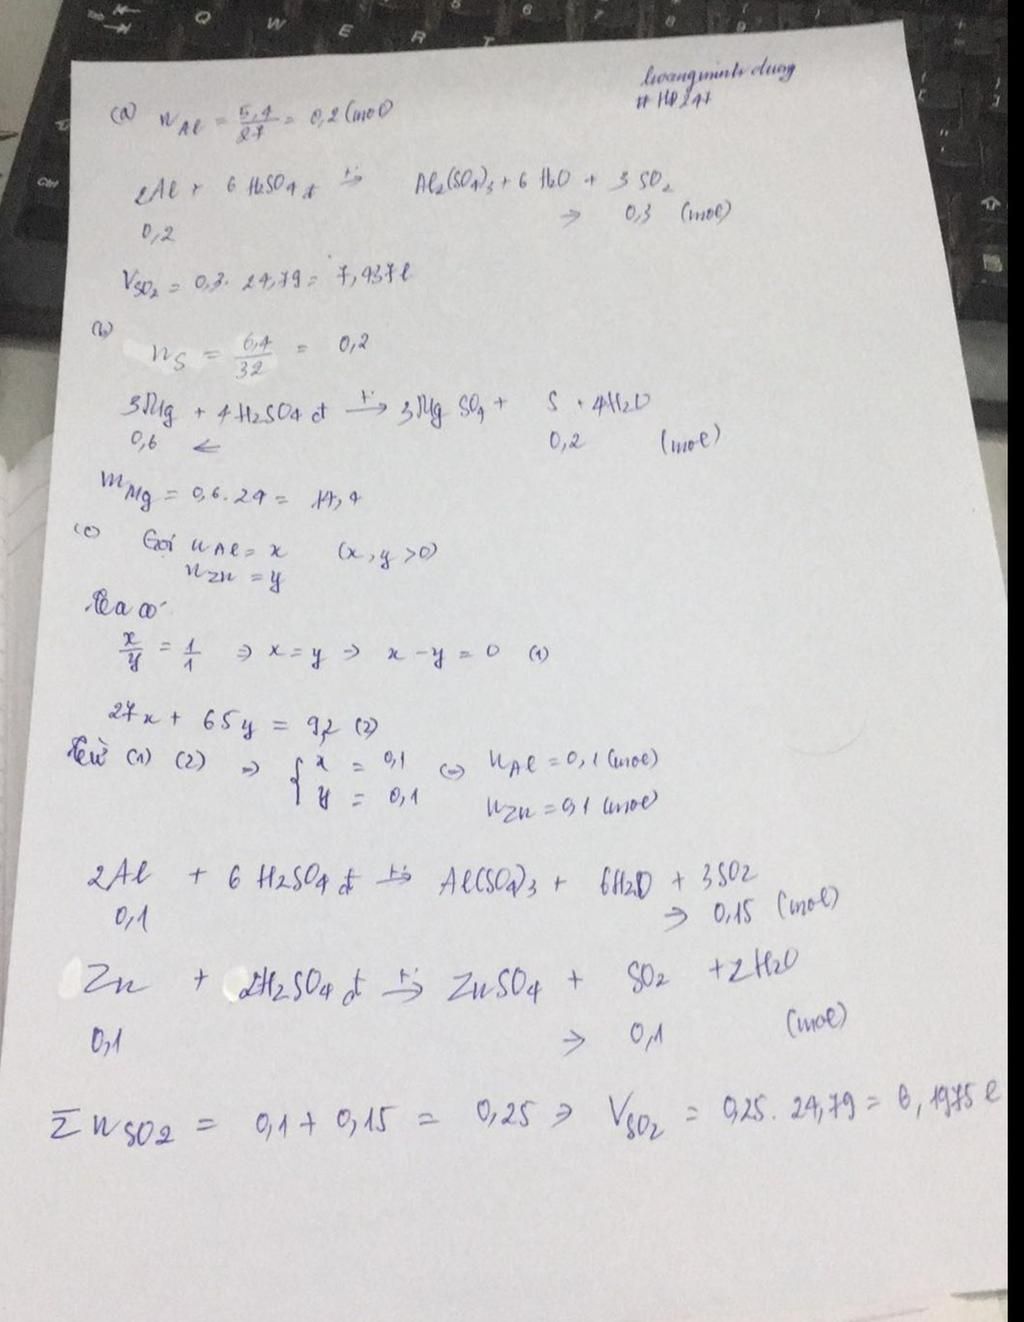 hoangminh dung
# HD247
(a) nAl = 5,4/27 = 0,2 (mol)
2Al + 6 H2SO4 đ t°→ Al2(SO4)3 + 6 H2O + 3 SO2
0,2 → 0,3 (mol)
VSO2 = 0,3. 24,79 = 7,437 l
(b)
nS = 6,4/32 = 0,2
3Mg + 4 H2SO4 đ t°→ 3Mg SO4 + S + 4H2O
0,6 ← 0,2 (mol)
mMg = 0,6.24 = 14,4
(c) Gọi nAl = x (x,y >0)
nZn = y
Ta có
x/y = 1/1 ⇒ x = y ⇒ x - y = 0 (1)
27x + 65y = 9,2 (2)
Từ (1) (2) ⇒ { x = 0,1 ⇔ nAl = 0,1 (mol)
y = 0,1 nZn = 0,1 (mol)
2Al + 6 H2SO4 đ t°→ Al(SO4)3 + 6H2O + 3SO2
0,1 → 0,15 (mol)
Zn + 2H2SO4 đ t°→ ZnSO4 + SO2 + 2H2O
0,1 → 0,1 (mol)
Σ nSO2 = 0,1 + 0,15 = 0,25 ⇒ VSO2 = 0,25. 24,79 = 6,1975 l